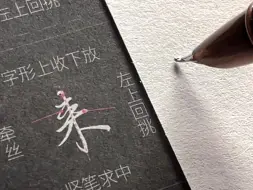 左上回挑
字形上收下放
左上回挑
牵丝
竖笔求中